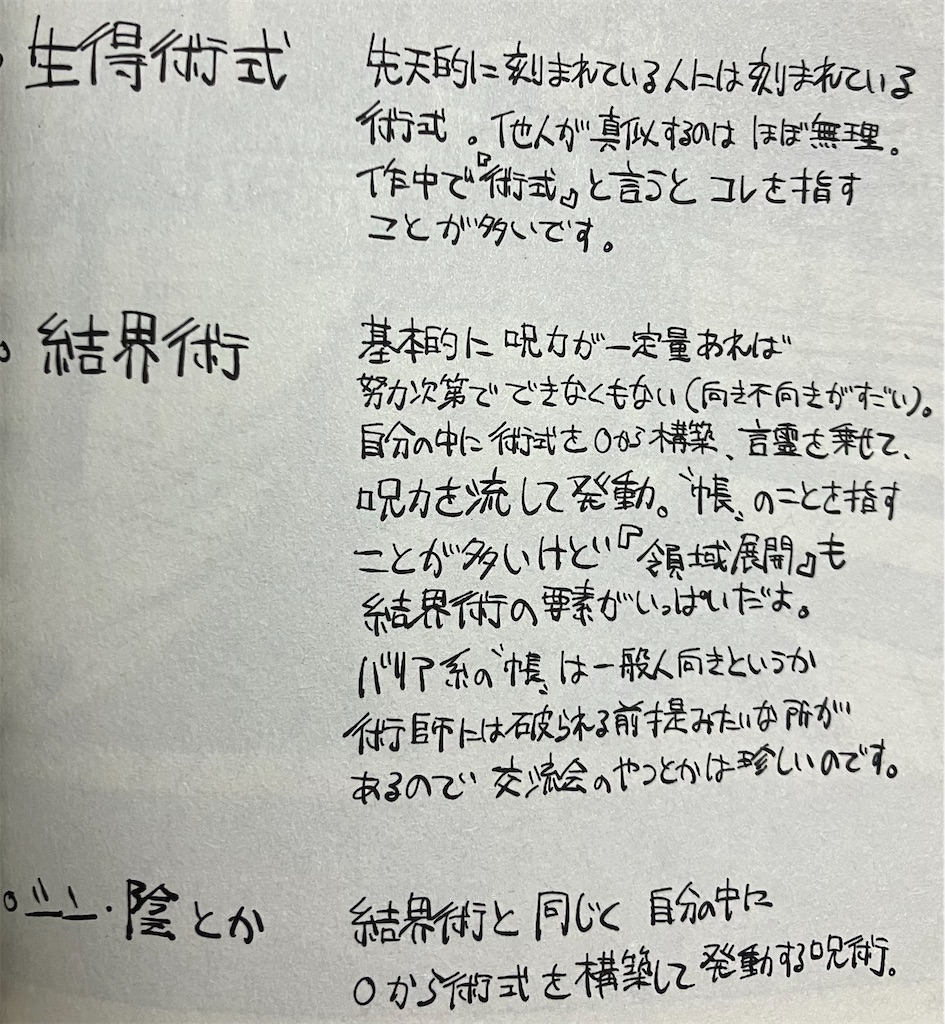 生得術式
先天的に刻まれている人には刻まれている
術式。他人が真似するのは ほぼ無理。
作中で『術式』と言うと コレを指す
ことが多いです。
結界術
基本的に 呪力が一定量あれば
努力次第で できなくもない(向き不向きがすごい)。
自分の中に 術式を 0から構築、言霊を乗せて、
呪力を流して発動。〝帳〟のことを指す
ことが多いけど『領域展開』も
結界術の要素がいっぱいだよ。
バリア系の〝帳〟は一般人向きというか
術師には破られる前提みたいな所が
あるので 交流会のやつとかは珍しいのです。
・陰とか
結界術と 同じく 自分の中に
0から術式を構築して発動する呪術。